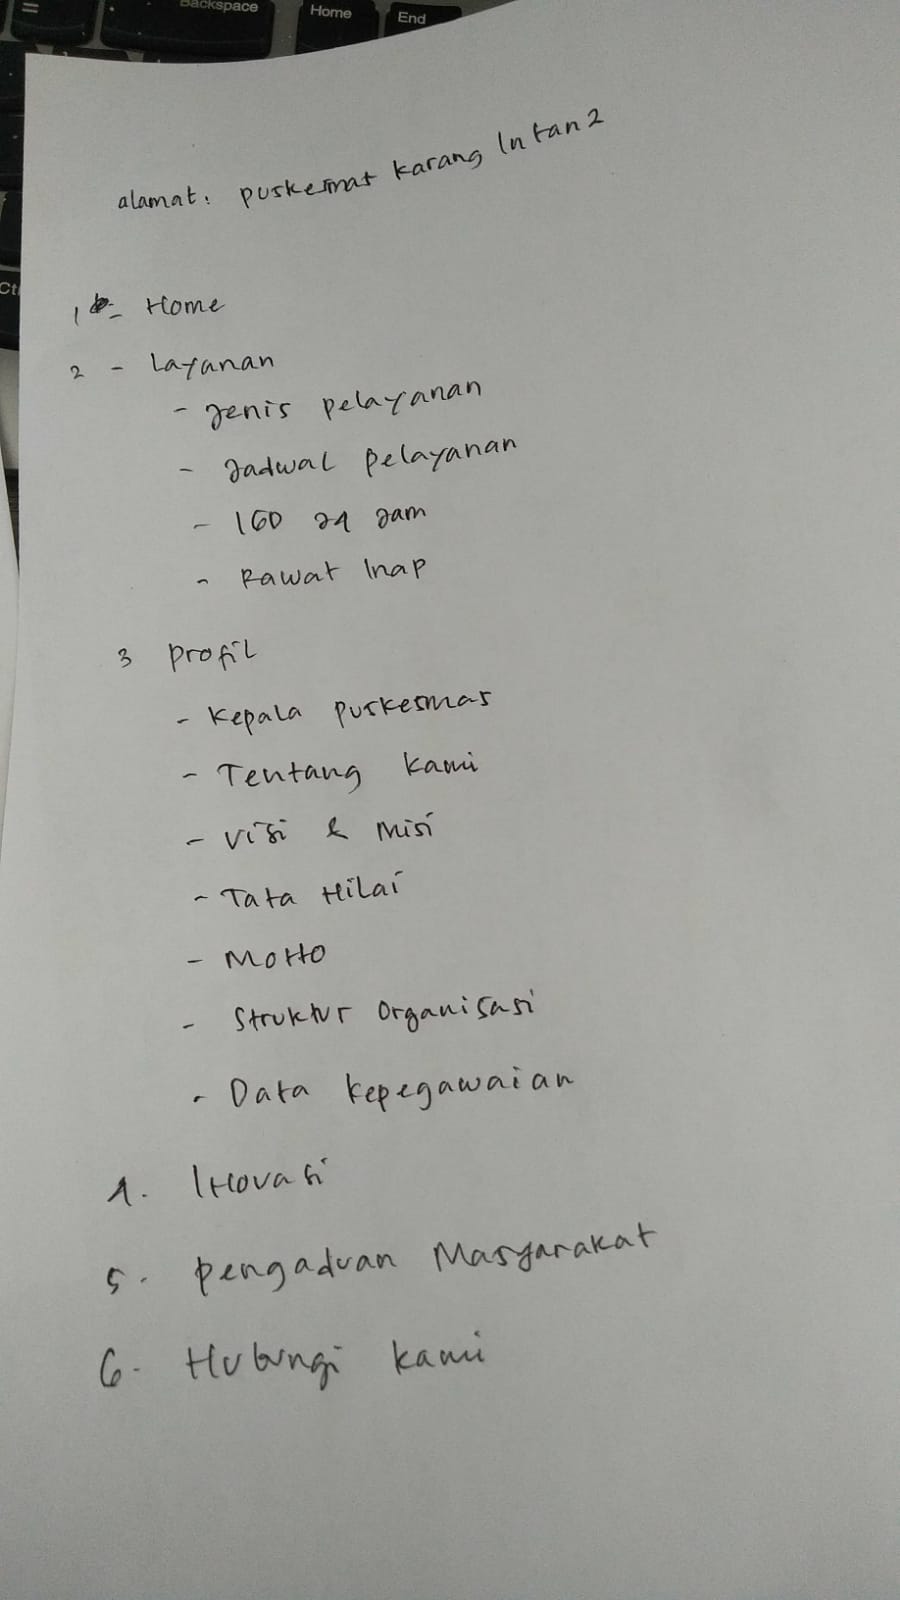 Backspace
Home
End
=
Ct
alamat: puskesmas karang Intan 2
1 - Home
2 - Layanan
- Jenis pelayanan
- Jadwal pelayanan
- IGD 24 Jam
- Rawat Inap
3 Profil
- Kepala puskesmas
- Tentang kami
- Visi & Misi
- Tata Nilai
- Motto
- Struktur Organisasi
- Data kepegawaian
4. Inovasi
5. Pengaduan Masyarakat
6. Hubungi kami